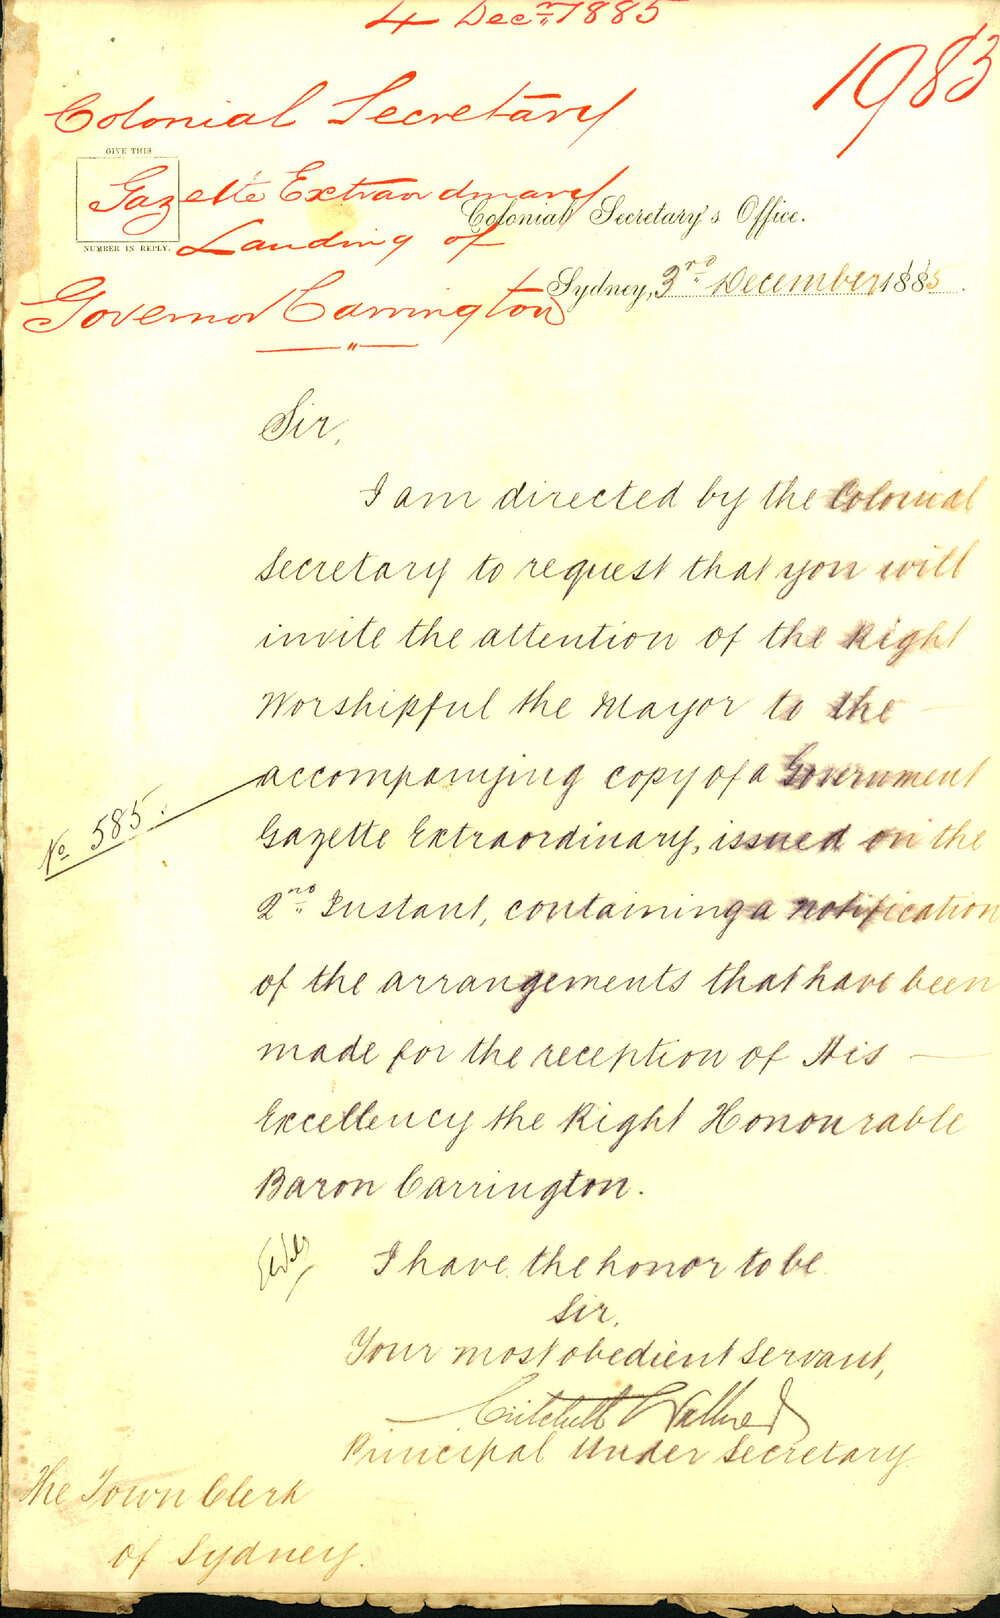 4 Decr. 1885
1983
Colonial Secretary
GIVE THIS
NUMBER IN REPLY.
Gazette Extraordinary
Landing of
Governor Carrington
Colonial Secretary's Office.
Sydney, 3rd December 1885.
Sir,
I am directed by the Colonial
Secretary to request that you will
invite the attention of the Right
Worshipful the Mayor to the
accompanying copy of a Government
No 585.
Gazette Extraordinary, issued on the
2nd Instant, containing a notification
of the arrangements that have been
made for the reception of His
Excellency the Right Honourable
Baron Carrington.
I have the honor to be
Sir,
Your most obedient Servant,
Critchett Walker
Principal Under Secretary.
The Town Clerk
of Sydney.